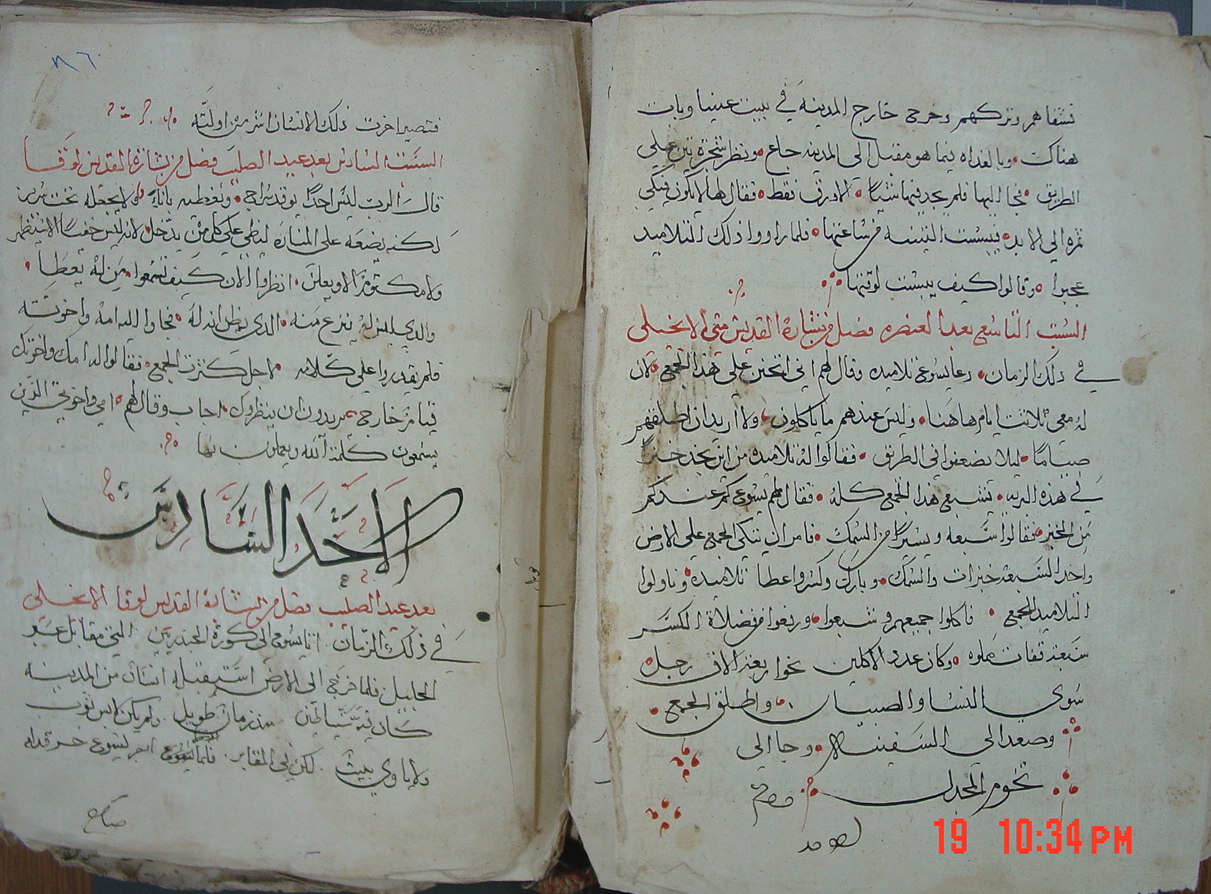 فشفاهم وتركهم وخرج خارج المدينة في بيت عينيا وبات
هناك وبالغداه بينما هو مقبل الى المدينه جاع ونظر شجرة تين على
الطريق فجا اليها فلم يجد فيها شيًا الا ورق فقط فقال لها لا يكون فيكي
ثمره الي الابد يبست التينه من ساعتها فلما راووا ذلك التلاميذ
عجبوا وقالوا كيف يبست لوقتها
السبت التاسع بعد العنصره فصل من بشارة القديس متى الانجيلي
في ذلك الزمان دعا يسوع تلاميده وقال لهم اني اتحنن علي هذا الجمع لان
له معي ثلاثت ايام هاهنا وليس عندهم ما ياكلون ولا اريد ان اطلقهم
صيامًا ليلا يضعفوا في الطريق فقالوا له تلاميده من اين نجد خبزًا
في هذه البريه يشبع هدا الجمع كله فقال لهم يسوع كم عندكم
من الخبز فقالوا سبعه ويسيرًا من السمك فامر ان يتكي الجمع علي الارض
واخد السبعة خبزات والسمك وبارك وكسر واعطا تلاميده وناولوا
التلاميد للجمع فاكلوا جميعهم وشبعوا ورفعوا من فضلاة الكسر
سبعة قفات مملوه وكان عدد الاكلين نحو اربعة الاف رجل
سوي النسا والصبيان واطلق الجمع
وصعد الى السفينه وجا الي
تخوم المجدل
19 10:34 PM
٨٦
فتصير اخرت ذلك الانسان اشر من اولته
السبت السادس بعد عيد الصليب فصل من بشارة القديس لوقا
قال الرب ليس احدًا يوقد سراج ويغطيه باناء ولا يجعله تحت سرير
لكنه يضعه على المناره ليضي علي كلمن يدخل لانه ليس خفيًا الا سيظهر
ولا مكتومًا الا ويعلن انظروا الان كيف تسمعوا من له يعطا
والدي ليس له ينزع منه الدي يظن انه له فجاوا اليه امه واخوته
فلم يقدروا على كلامه من اجل كثرت الجمع فقالوا له امك واخوتك
قيام خارج يريدون ان ينظروك اجاب وقال لهم امي واخوتي الذين
يسمعون كلمة الله ويعملون بها
الاحد السادس
بعد عيد الصليب فصل من بشاية القديس لوقا الانجيلي
في ذلك الزمان اتا يسوع الى كورة الجرجسيين التي مقابل عبر
الجليل فلما خرج الى الارض استقبله انسان من المدينه
كان به شياطين منذ زمان طويل ولم يكن يلبس ثوب
ولا ياوي بيت لكن في المقابر فلما ابصر يسوع خر قدامه
صاح